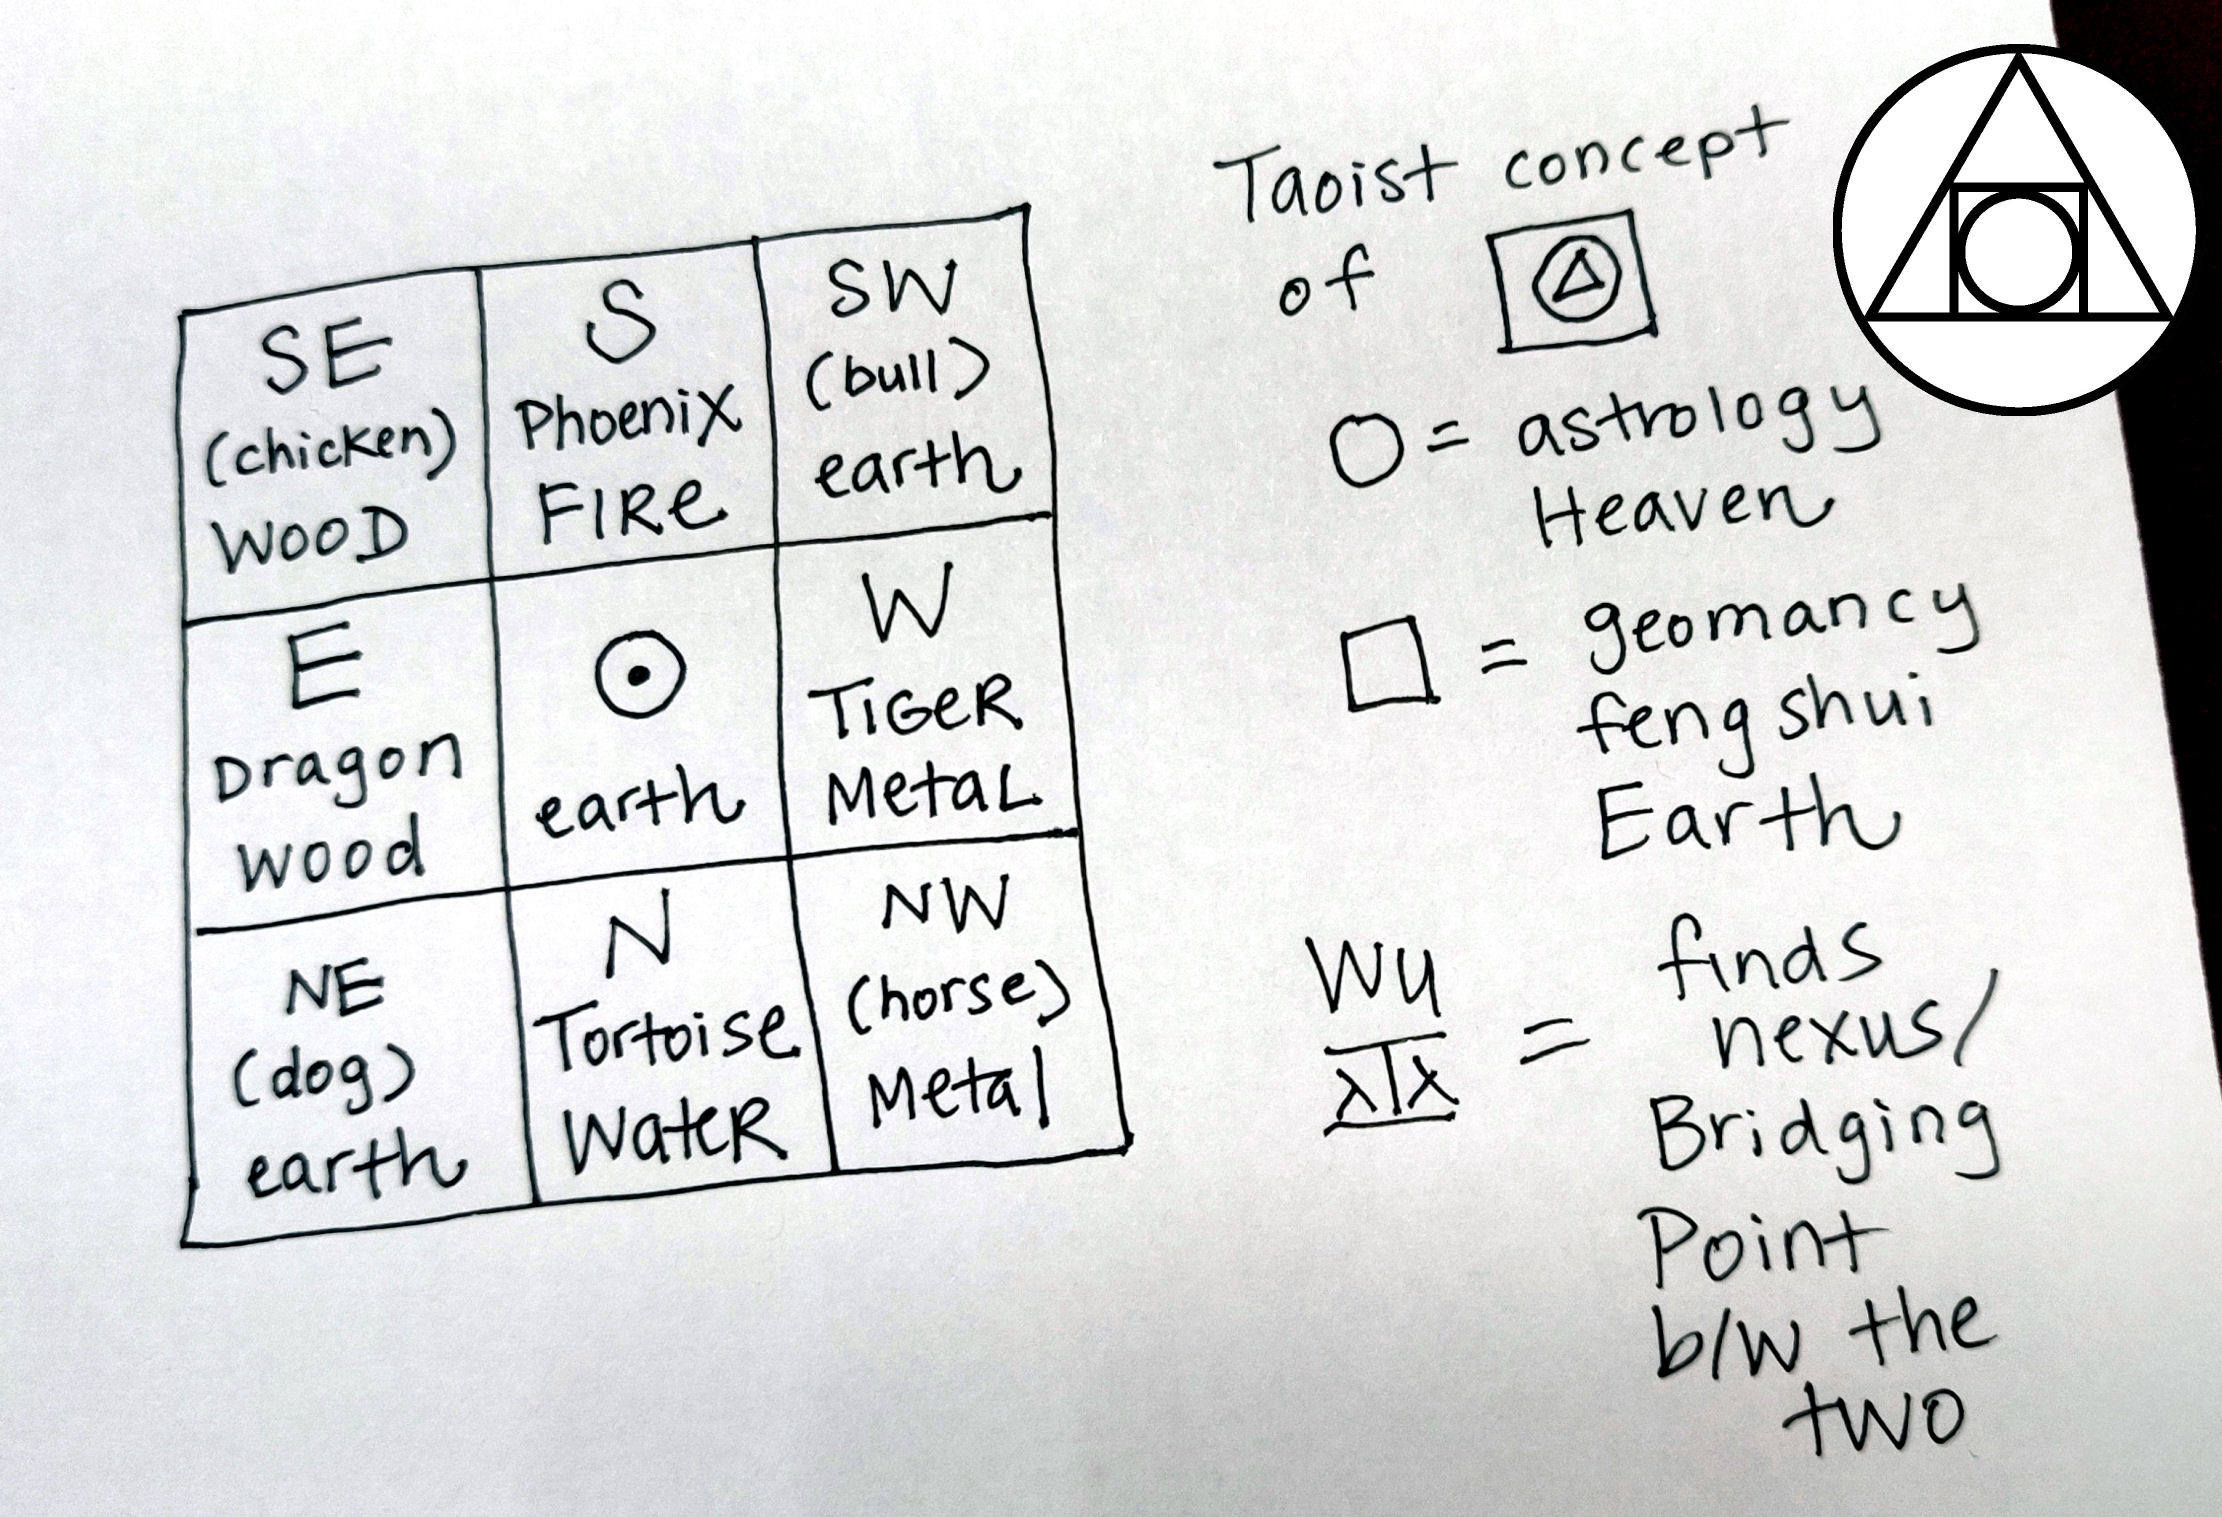 SE
(chicken)
WOOD
S
Phoenix
FIRe
SW
(bull)
earth
E
Dragon
wood
earth
W
TiGeR
MetaL
NE
(dog)
earth
N
Tortoise
WateR
NW
(horse)
Metal
Taoist concept
of
= astrology
Heaven
= geomancy
feng shui
Earth
Wu
巫
= finds
nexus/
Bridging
Point
b/w the
two